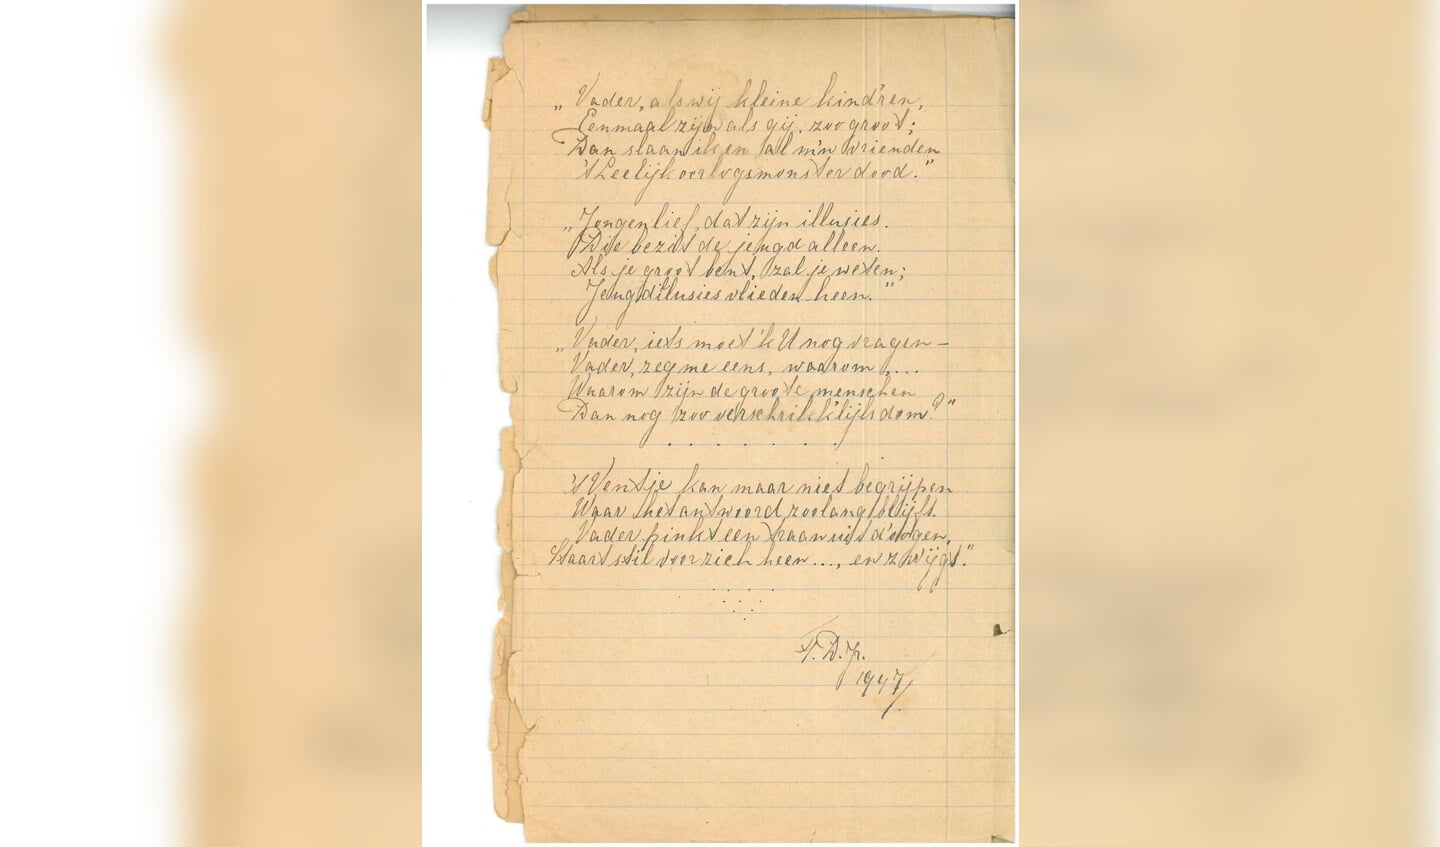 „Vader, als wij kleine kind'ren,
Eenmaal zijn als gij, zoo groot;
Dan slaan ik en al m'n vrienden
't Leelijk oorlogsmonster dood."
„Jongenlief, dat zijn illusies.
Die bezit de jeugd alleen.
Als je groot bent, zal je weten;
Jeugdillusies vlieden heen."
„Vader, iets moet 'k U nog vragen –
Vader, zeg me eens, waarom ....
Waarom zijn de groote menschen
Dan nog zoo verschrikk'lijk dom?"
. . . . . . .
't Ventje kan maar niet begrijpen
Waar het antwoord zoolang blijft.
Vader pinkt een traan uit d'oogen,
Staart stil voor zich heen..., en zwijgt."
F.D.P.
1947